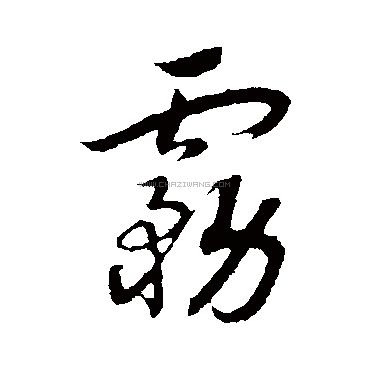 霧
WWW.CHAZIWANG.COM